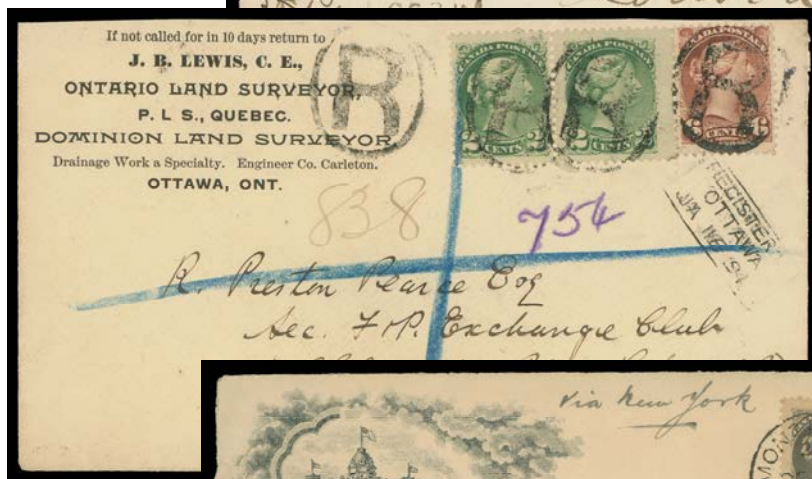 If not called for in 10 days return to
J. B. LEWIS, C. E.,
ONTARIO LAND SURVEYOR,
P. L S., QUEBEC.
DOMINION LAND SURVEYOR
Drainage Work a Specialty. Engineer Co. Carleton.
OTTAWA, ONT.
R
CANADA POSTAGE
2 CENTS 2
CANADA POSTAGE
2 CENTS 2
CANADA POSTAGE
6 CENTS 6
838
754
REGISTER
OTTAWA
94
R. Preston Pearce Esq
Sec. F.P. Exchange Club
via New York
MON